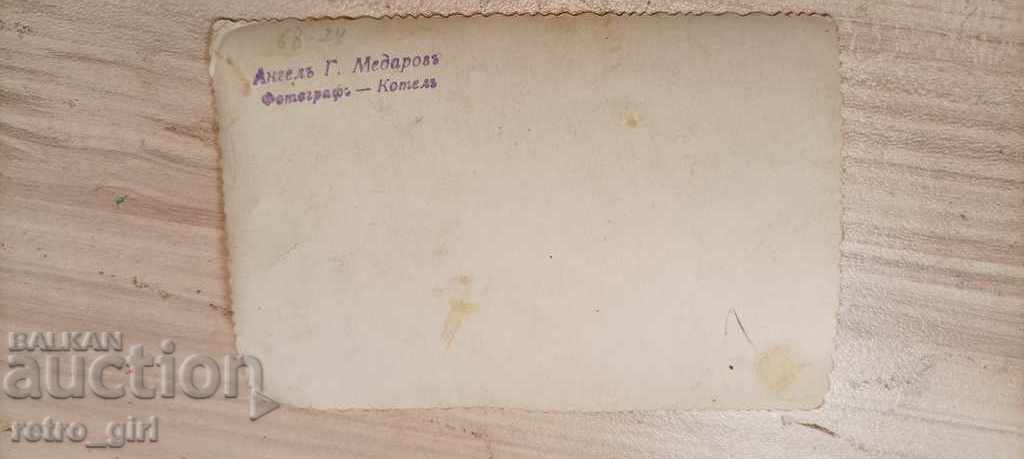 68-24
Ангелъ Г. Медаровъ
Фотографъ — Котелъ
BALKAN
auction
retro_girl